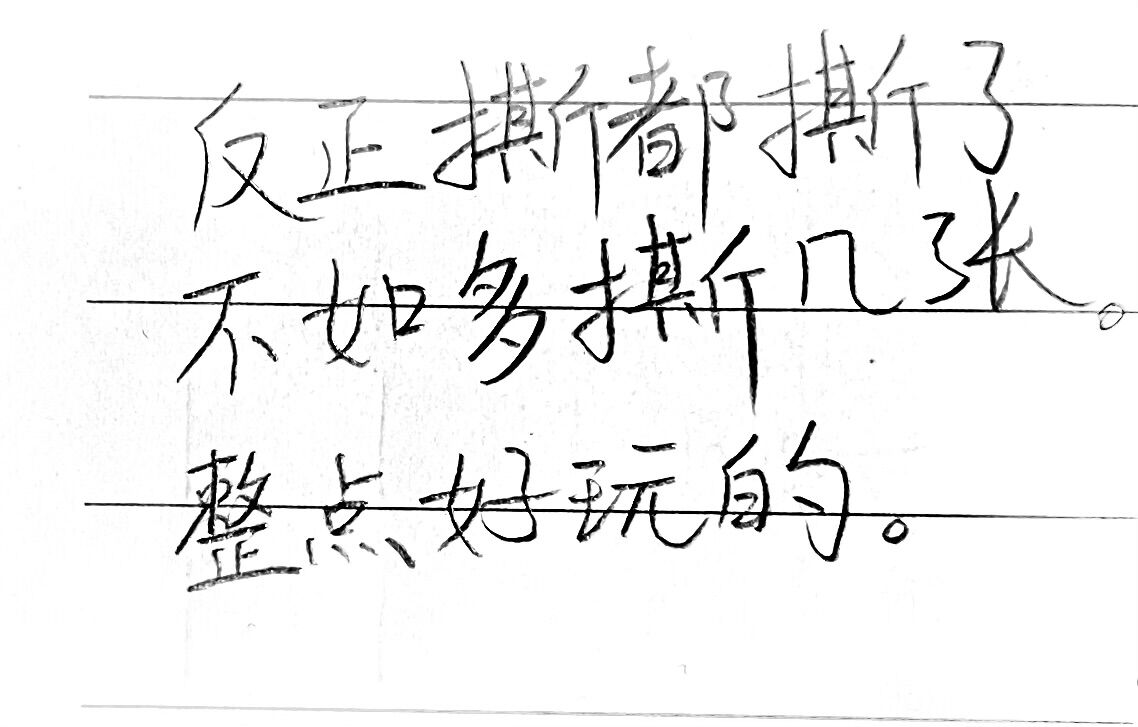 反正撕都撕了
不如多撕几张。
整点好玩的。